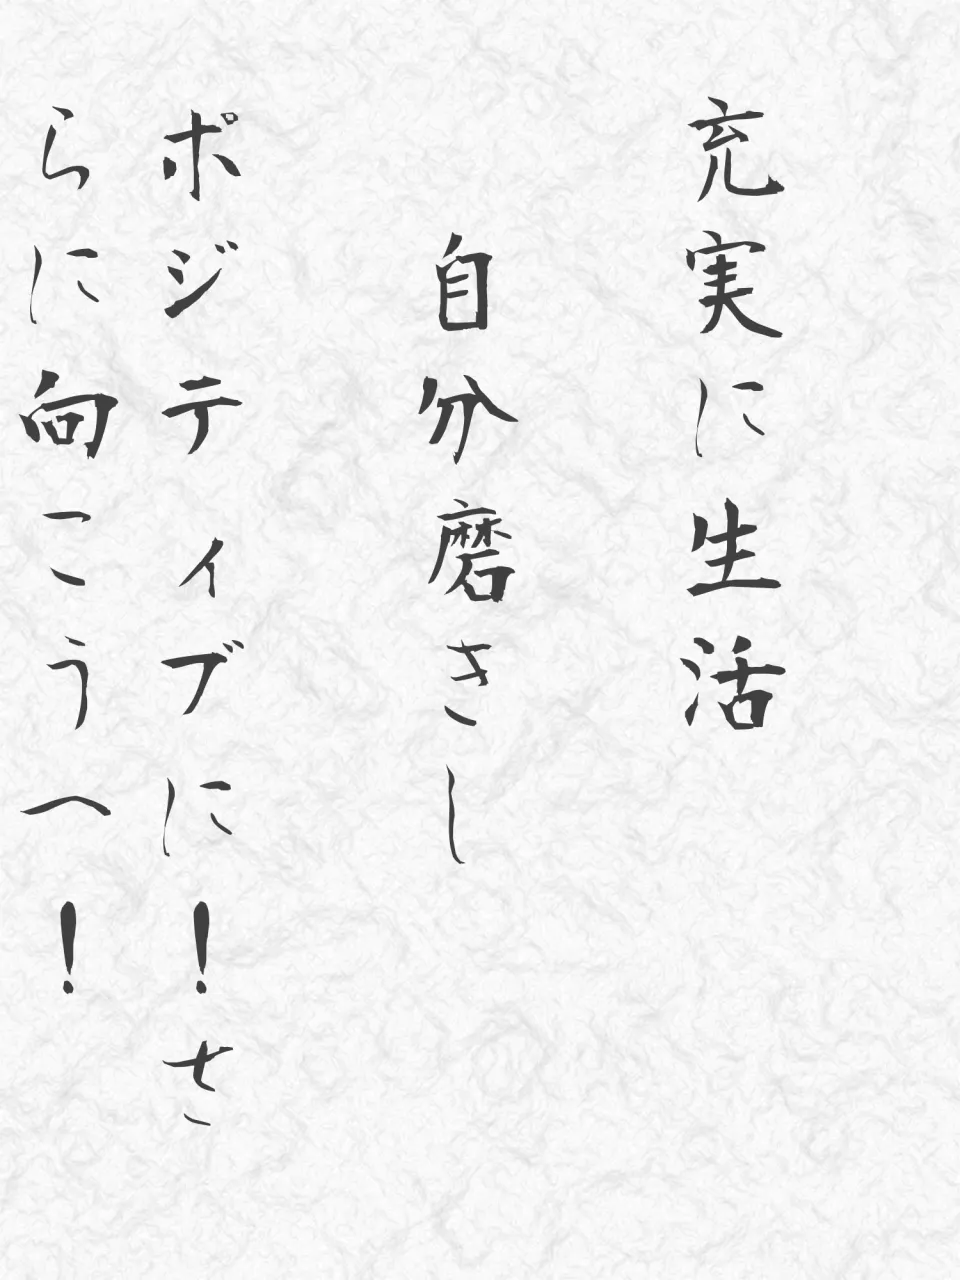 充実に生活
自分磨きし
ポジティブに!さ
らに向こうへ!